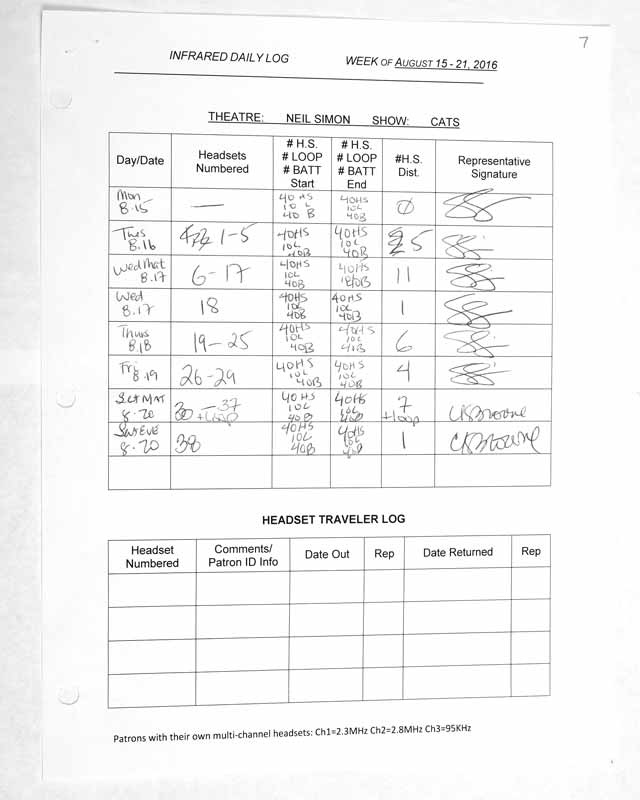 7
INFRARED DAILY LOG WEEK OF AUGUST 15 - 21, 2016
THEATRE: NEIL SIMON SHOW: CATS
Day/Date
Headsets Numbered
# H.S. # LOOP # BATT Start
# H.S. # LOOP # BATT End
#H.S. Dist.
Representative Signature
Mon 8.15 — 40HS 10L 40B 40HS 10L 40B 0
Tues 8.16 1-5 40HS 10L 40B 40HS 10L 40B 5
Wed Mat 8.17 6-17 40HS 10L 40B 40HS 11
Wed 8.17 18 40HS 10L 40B 40HS 10L 40B 1
Thurs 8.18 19-25 40HS 10L 40B 40HS 10L 40B 6
Fri 8.19 26-29 40HS 10L 40B 40HS 10L 40B 4
Sat MAT 8.20 30-37 +Loop 40HS 10L 40B 40HS 10L 40B 7 +Loop CKBrowne
Sat EVE 8.20 38 40HS 10L 40B 40HS 10L 40B 1 CKBrowne
HEADSET TRAVELER LOG
Headset Numbered
Comments/ Patron ID Info
Date Out
Rep
Date Returned
Rep
Patrons with their own multi-channel headsets: Ch1=2.3MHz Ch2=2.8MHz Ch3=95KHz